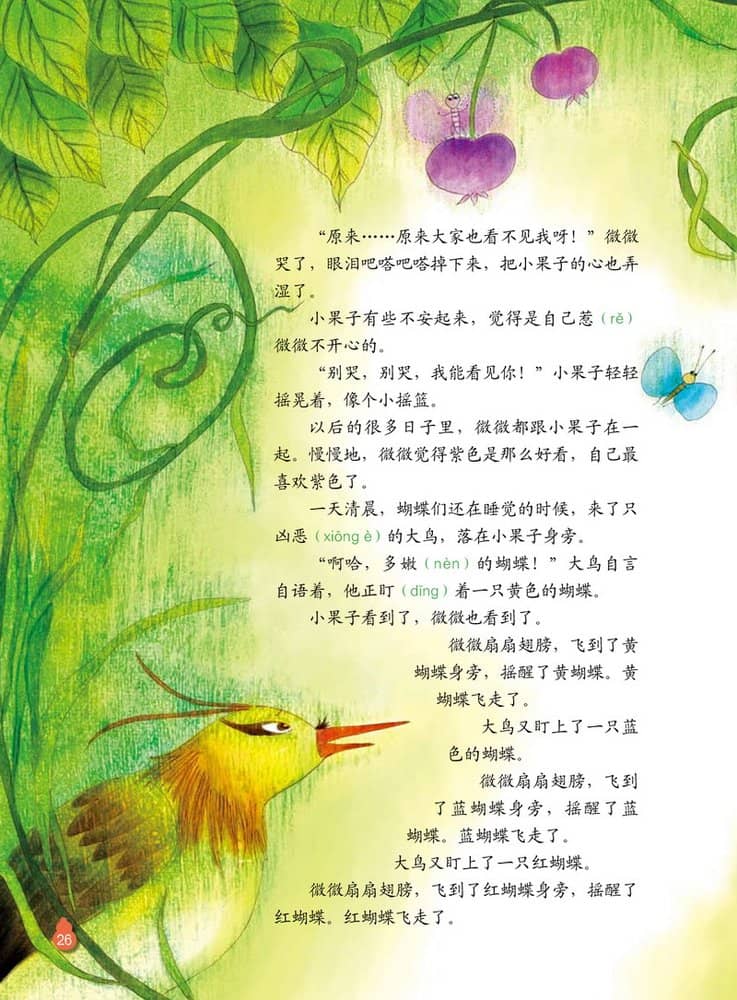 “原来……原来大家也看不见我呀！”微微
哭了，眼泪吧嗒吧嗒掉下来，把小果子的心也弄
湿了。
小果子有些不安起来，觉得是自己惹（rě）
微微不开心的。
“别哭，别哭，我能看见你！”小果子轻轻
摇晃着，像个小摇篮。
以后的很多日子里，微微都跟小果子在一
起。慢慢地，微微觉得紫色是那么好看，自己最
喜欢紫色了。
一天清晨，蝴蝶们还在睡觉的时候，来了只
凶恶（xiōng è）的大鸟，落在小果子身旁。
“啊哈，多嫩（nèn）的蝴蝶！”大鸟自言
自语着，他正盯（dīng）着一只黄色的蝴蝶。
小果子看到了，微微也看到了。
微微扇扇翅膀，飞到了黄
蝴蝶身旁，摇醒了黄蝴蝶。黄
蝴蝶飞走了。
大鸟又盯上了一只蓝
色的蝴蝶。
微微扇扇翅膀，飞到
了蓝蝴蝶身旁，摇醒了蓝
蝴蝶。蓝蝴蝶飞走了。
大鸟又盯上了一只红蝴蝶。
微微扇扇翅膀，飞到了红蝴蝶身旁，摇醒了
红蝴蝶。红蝴蝶飞走了。
26